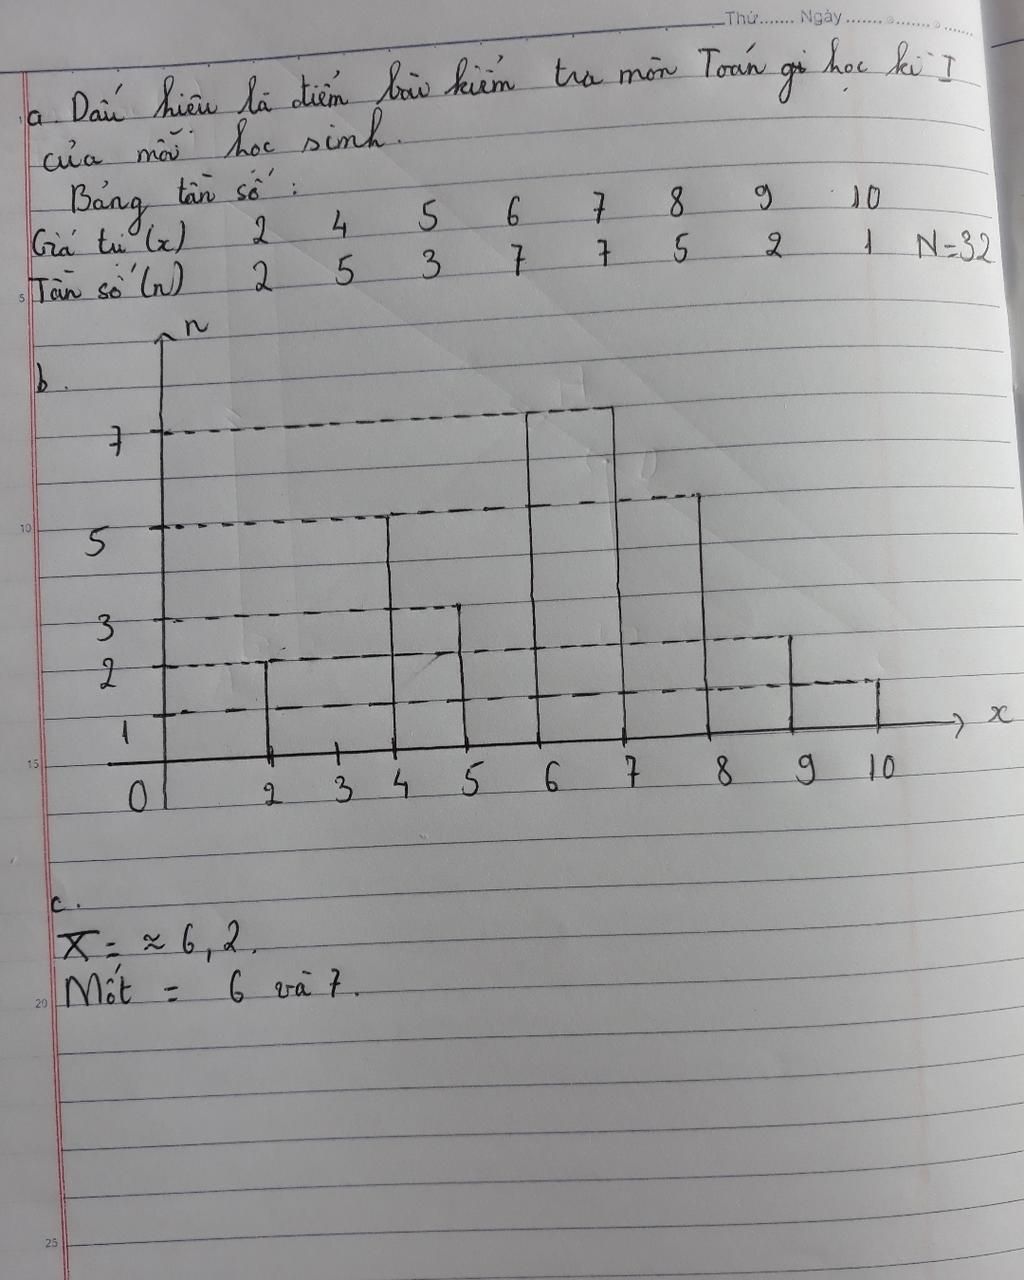 Thứ....... Ngày ....................
a. Dấu hiệu là điểm bài kiểm tra môn Toán học kì I
của mỗi học sinh.
Bảng tần số:
Giá trị (x) 2 4 5 6 7 8 9 10
Tần số (n) 2 5 3 7 7 5 2 1 N=32
5
n
b.
7
10
5
3
2
1
15
x
0 2 3 4 5 6 7 8 9 10
c.
X̅ = ≈ 6,2.
Mốt = 6 và 7.
20
25